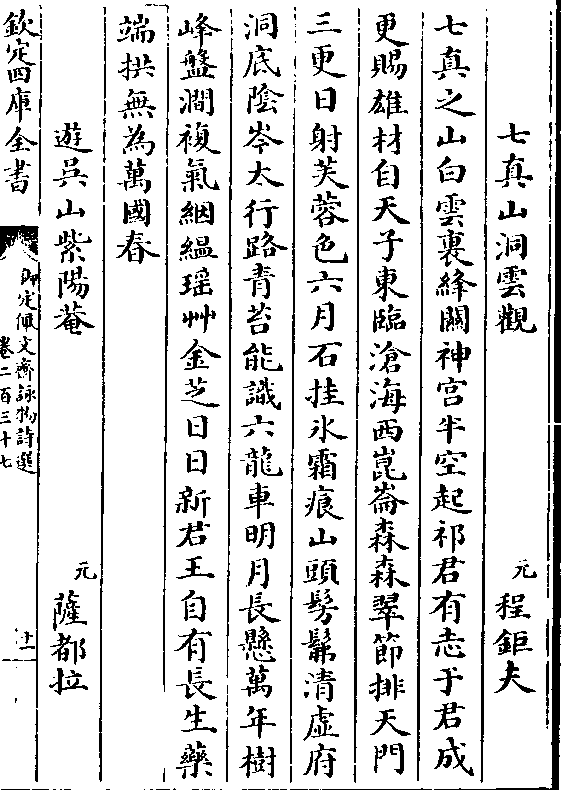 七真山洞雲觀
元　程鉅夫
七真之山白雲裏絳闕神宮半空起祁君有志于君成
更賜雄材自天子東臨滄海西崑崙森森翠節排天門
三更日射芙蓉色六月石挂氷霜痕山頭髣髴清虛府
洞底陰岑太行路青苔能識六龍車明月長懸萬年樹
峰盤澗複氣絪縕瑶艸金芝日日新君王自有長生藥
端拱無為萬國春
遊吳山紫陽菴
元　薩都拉
欽定四庫全書
御定佩文齋詠物詩選
卷二百三十七
十一